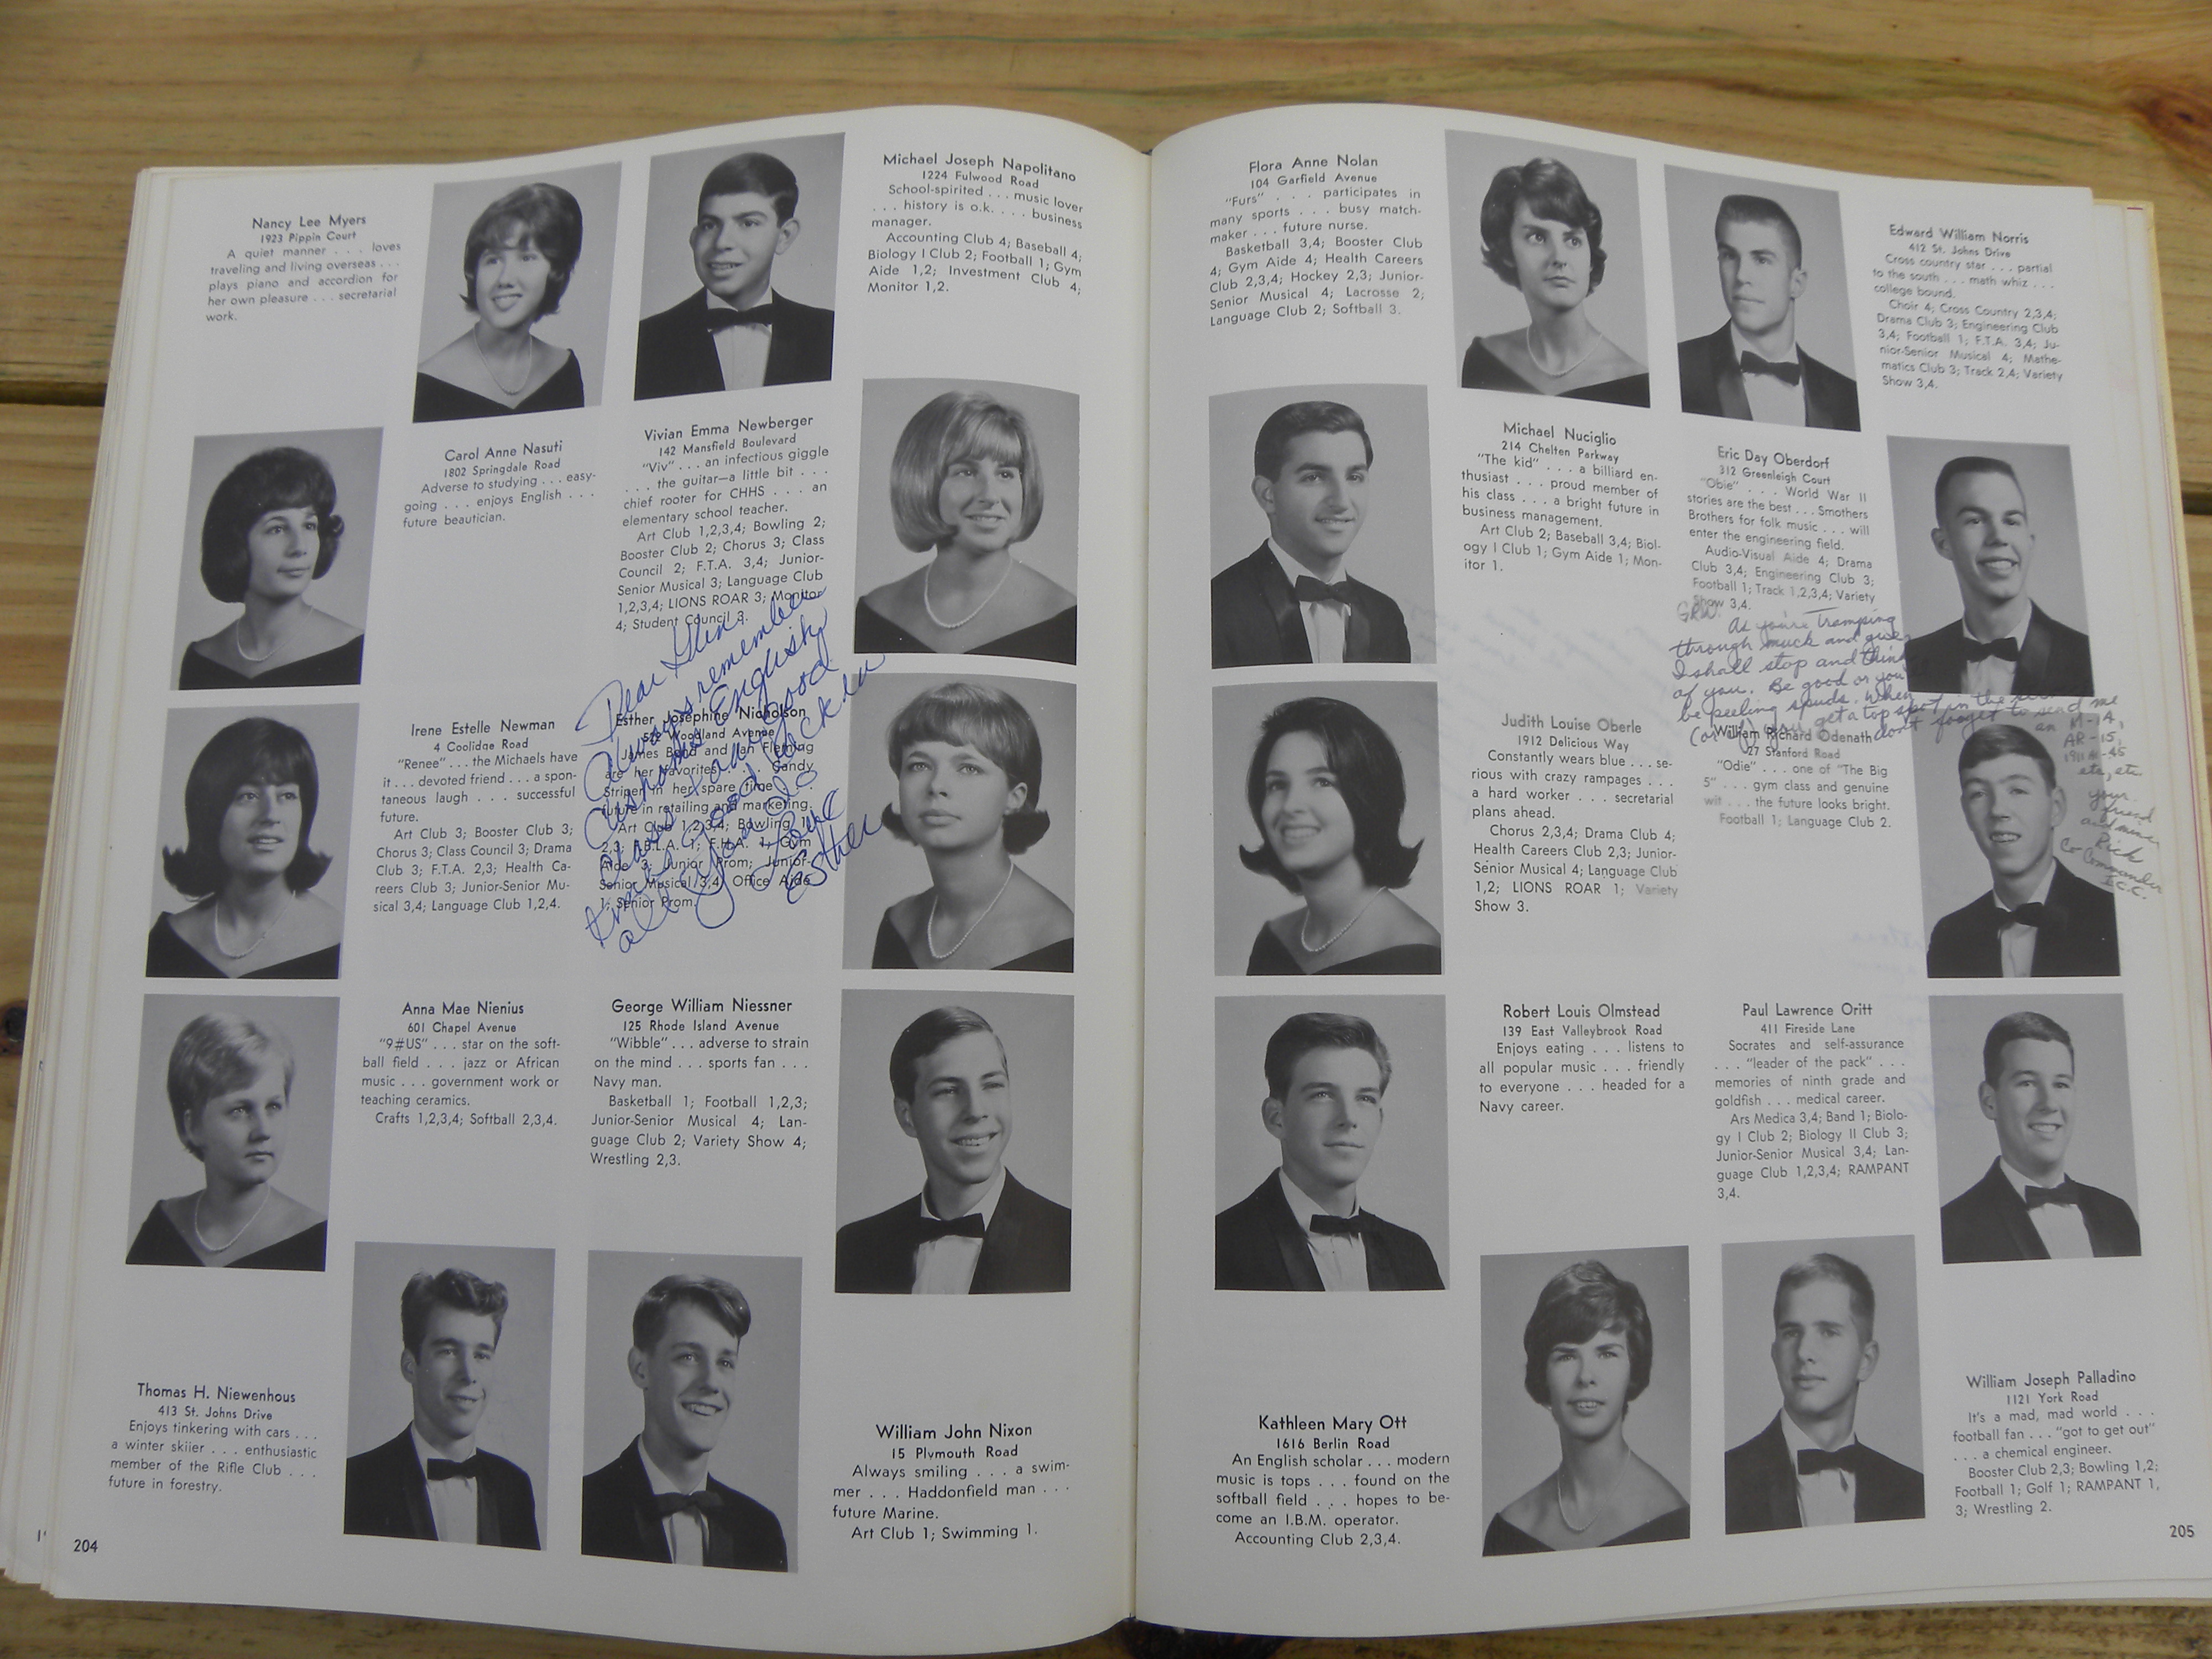 Nancy Lee Myers
1923 Pippin Court
A quiet manner . . . loves
traveling and living overseas . . .
plays piano and accordion for
her own pleasure . . . secretarial
work.
Michael Joseph Napolitano
1224 Fulwood Road
School-spirited . . . music lover
. . . history is o.k. . . . business
manager.
Accounting Club 4; Baseball 4;
Biology I Club 2; Football 1; Gym
Aide 1,2; Investment Club 4;
Monitor 1,2.
Carol Anne Nasuti
1802 Springdale Road
Adverse to studying . . . easy-
going . . . enjoys English . . .
future beautician.
Vivian Emma Newberger
142 Mansfield Boulevard
"Viv" . . . an infectious giggle
. . . the guitar—a little bit . . .
chief rooter for CHHS . . . an
elementary school teacher.
Art Club 1,2,3,4; Bowling 2;
Booster Club 2; Chorus 3; Class
Council 2; F.T.A. 3,4; Junior-
Senior Musical 3; Language Club
1,2,3,4; LIONS ROAR 3; Monitor
4; Student Council 3.
Irene Estelle Newman
4 Coolidge Road
"Renee" . . . the Michaels have
it . . . devoted friend . . . a spon-
taneous laugh . . . successful
future.
Art Club 3; Booster Club 3;
Chorus 3; Class Council 3; Drama
Club 3; F.T.A. 2,3; Health Ca-
reers Club 3; Junior-Senior Mu-
sical 3,4; Language Club 1,2,4.
Esther Josephine Nicholson
Woodland Avenue
James Bond and Ian Fleming
are her favorites . . . Candy
Striper in her spare time . . .
future in retailing and marketing.
Art Club 1,2,3,4; Bowling 1,
2,3; F.B.L.A. 1; F.H.A. 1; Gym
Aide 3; Junior Prom; Junior-
Senior Musical 3,4; Office Aide
1; Senior Prom.
Dear
Always remember
English
class Good
luck in
all you do
Love
Esther
Anna Mae Nienius
601 Chapel Avenue
"9#US" . . . star on the soft-
ball field . . . jazz or African
music . . . government work or
teaching ceramics.
Crafts 1,2,3,4; Softball 2,3,4.
George William Niessner
125 Rhode Island Avenue
"Wibble" . . . adverse to strain
on the mind . . . sports fan . . .
Navy man.
Basketball 1; Football 1,2,3;
Junior-Senior Musical 4; Lan-
guage Club 2; Variety Show 4;
Wrestling 2,3.
Thomas H. Niewenhous
413 St. Johns Drive
Enjoys tinkering with cars . . .
a winter skiier . . . enthusiastic
member of the Rifle Club . . .
future in forestry.
William John Nixon
15 Plymouth Road
Always smiling . . . a swim-
mer . . . Haddonfield man . . .
future Marine.
Art Club 1; Swimming 1.
204
Flora Anne Nolan
104 Garfield Avenue
"Furs" . . . participates in
many sports . . . busy match-
maker . . . future nurse.
Basketball 3,4; Booster Club
4; Gym Aide 4; Health Careers
Club 2,3,4; Hockey 2,3; Junior-
Senior Musical 4; Lacrosse 2;
Language Club 2; Softball 3.
Edward William Norris
412 St. Johns Drive
Cross country star . . . partial
to the south . . . math whiz . . .
college bound.
Choir 4; Cross Country 2,3,4;
Drama Club 3; Engineering Club
3,4; Football 1; F.T.A. 3,4; Ju-
nior-Senior Musical 4; Mathe-
matics Club 3; Track 2,4; Variety
Show 3,4.
Michael Nuciglio
214 Chelten Parkway
"The kid" . . . a billiard en-
thusiast . . . proud member of
his class . . . a bright future in
business management.
Art Club 2; Baseball 3,4; Biol-
ogy I Club 1; Gym Aide 1; Mon-
itor 1.
Eric Day Oberdorf
312 Greenleigh Court
"Obie" . . . World War II
stories are the best . . . Smothers
Brothers for folk music . . . will
enter the engineering field.
Audio-Visual Aide 4; Drama
Club 3,4; Engineering Club 3;
Football 1; Track 1,2,3,4; Variety
Show 3,4.
As you're tramping
through muck and
I shall stop and think
of you. Be good or you
be peeling spuds. When
(or if) you get a top spot in the
don't forget to send me
an M-14,
AR-15,
etc, etc.
your
friend
Rick
Co Commander
Judith Louise Oberle
1912 Delicious Way
Constantly wears blue . . . se-
rious with crazy rampages . . .
a hard worker . . . secretarial
plans ahead.
Chorus 2,3,4; Drama Club 4;
Health Careers Club 2,3; Junior-
Senior Musical 4; Language Club
1,2; LIONS ROAR 1; Variety
Show 3.
William Richard Odenath
27 Stanford Road
"Odie" . . . one of "The Big
5" . . . gym class and genuine
wit . . . the future looks bright.
Football 1; Language Club 2.
Robert Louis Olmstead
139 East Valleybrook Road
Enjoys eating . . . listens to
all popular music . . . friendly
to everyone . . . headed for a
Navy career.
Paul Lawrence Oritt
411 Fireside Lane
Socrates and self-assurance
. . . "leader of the pack" . . .
memories of ninth grade and
goldfish . . . medical career.
Ars Medica 3,4; Band 1; Biolo-
gy I Club 2; Biology II Club 3;
Junior-Senior Musical 3,4; Lan-
guage Club 1,2,3,4; RAMPANT
3,4.
Kathleen Mary Ott
1616 Berlin Road
An English scholar . . . modern
music is tops . . . found on the
softball field . . . hopes to be-
come an I.B.M. operator.
Accounting Club 2,3,4.
William Joseph Palladino
1121 York Road
It's a mad, mad world . . .
football fan . . . "got to get out"
. . . a chemical engineer.
Booster Club 2,3; Bowling 1,2;
Football 1; Golf 1; RAMPANT 1,
3; Wrestling 2.
205